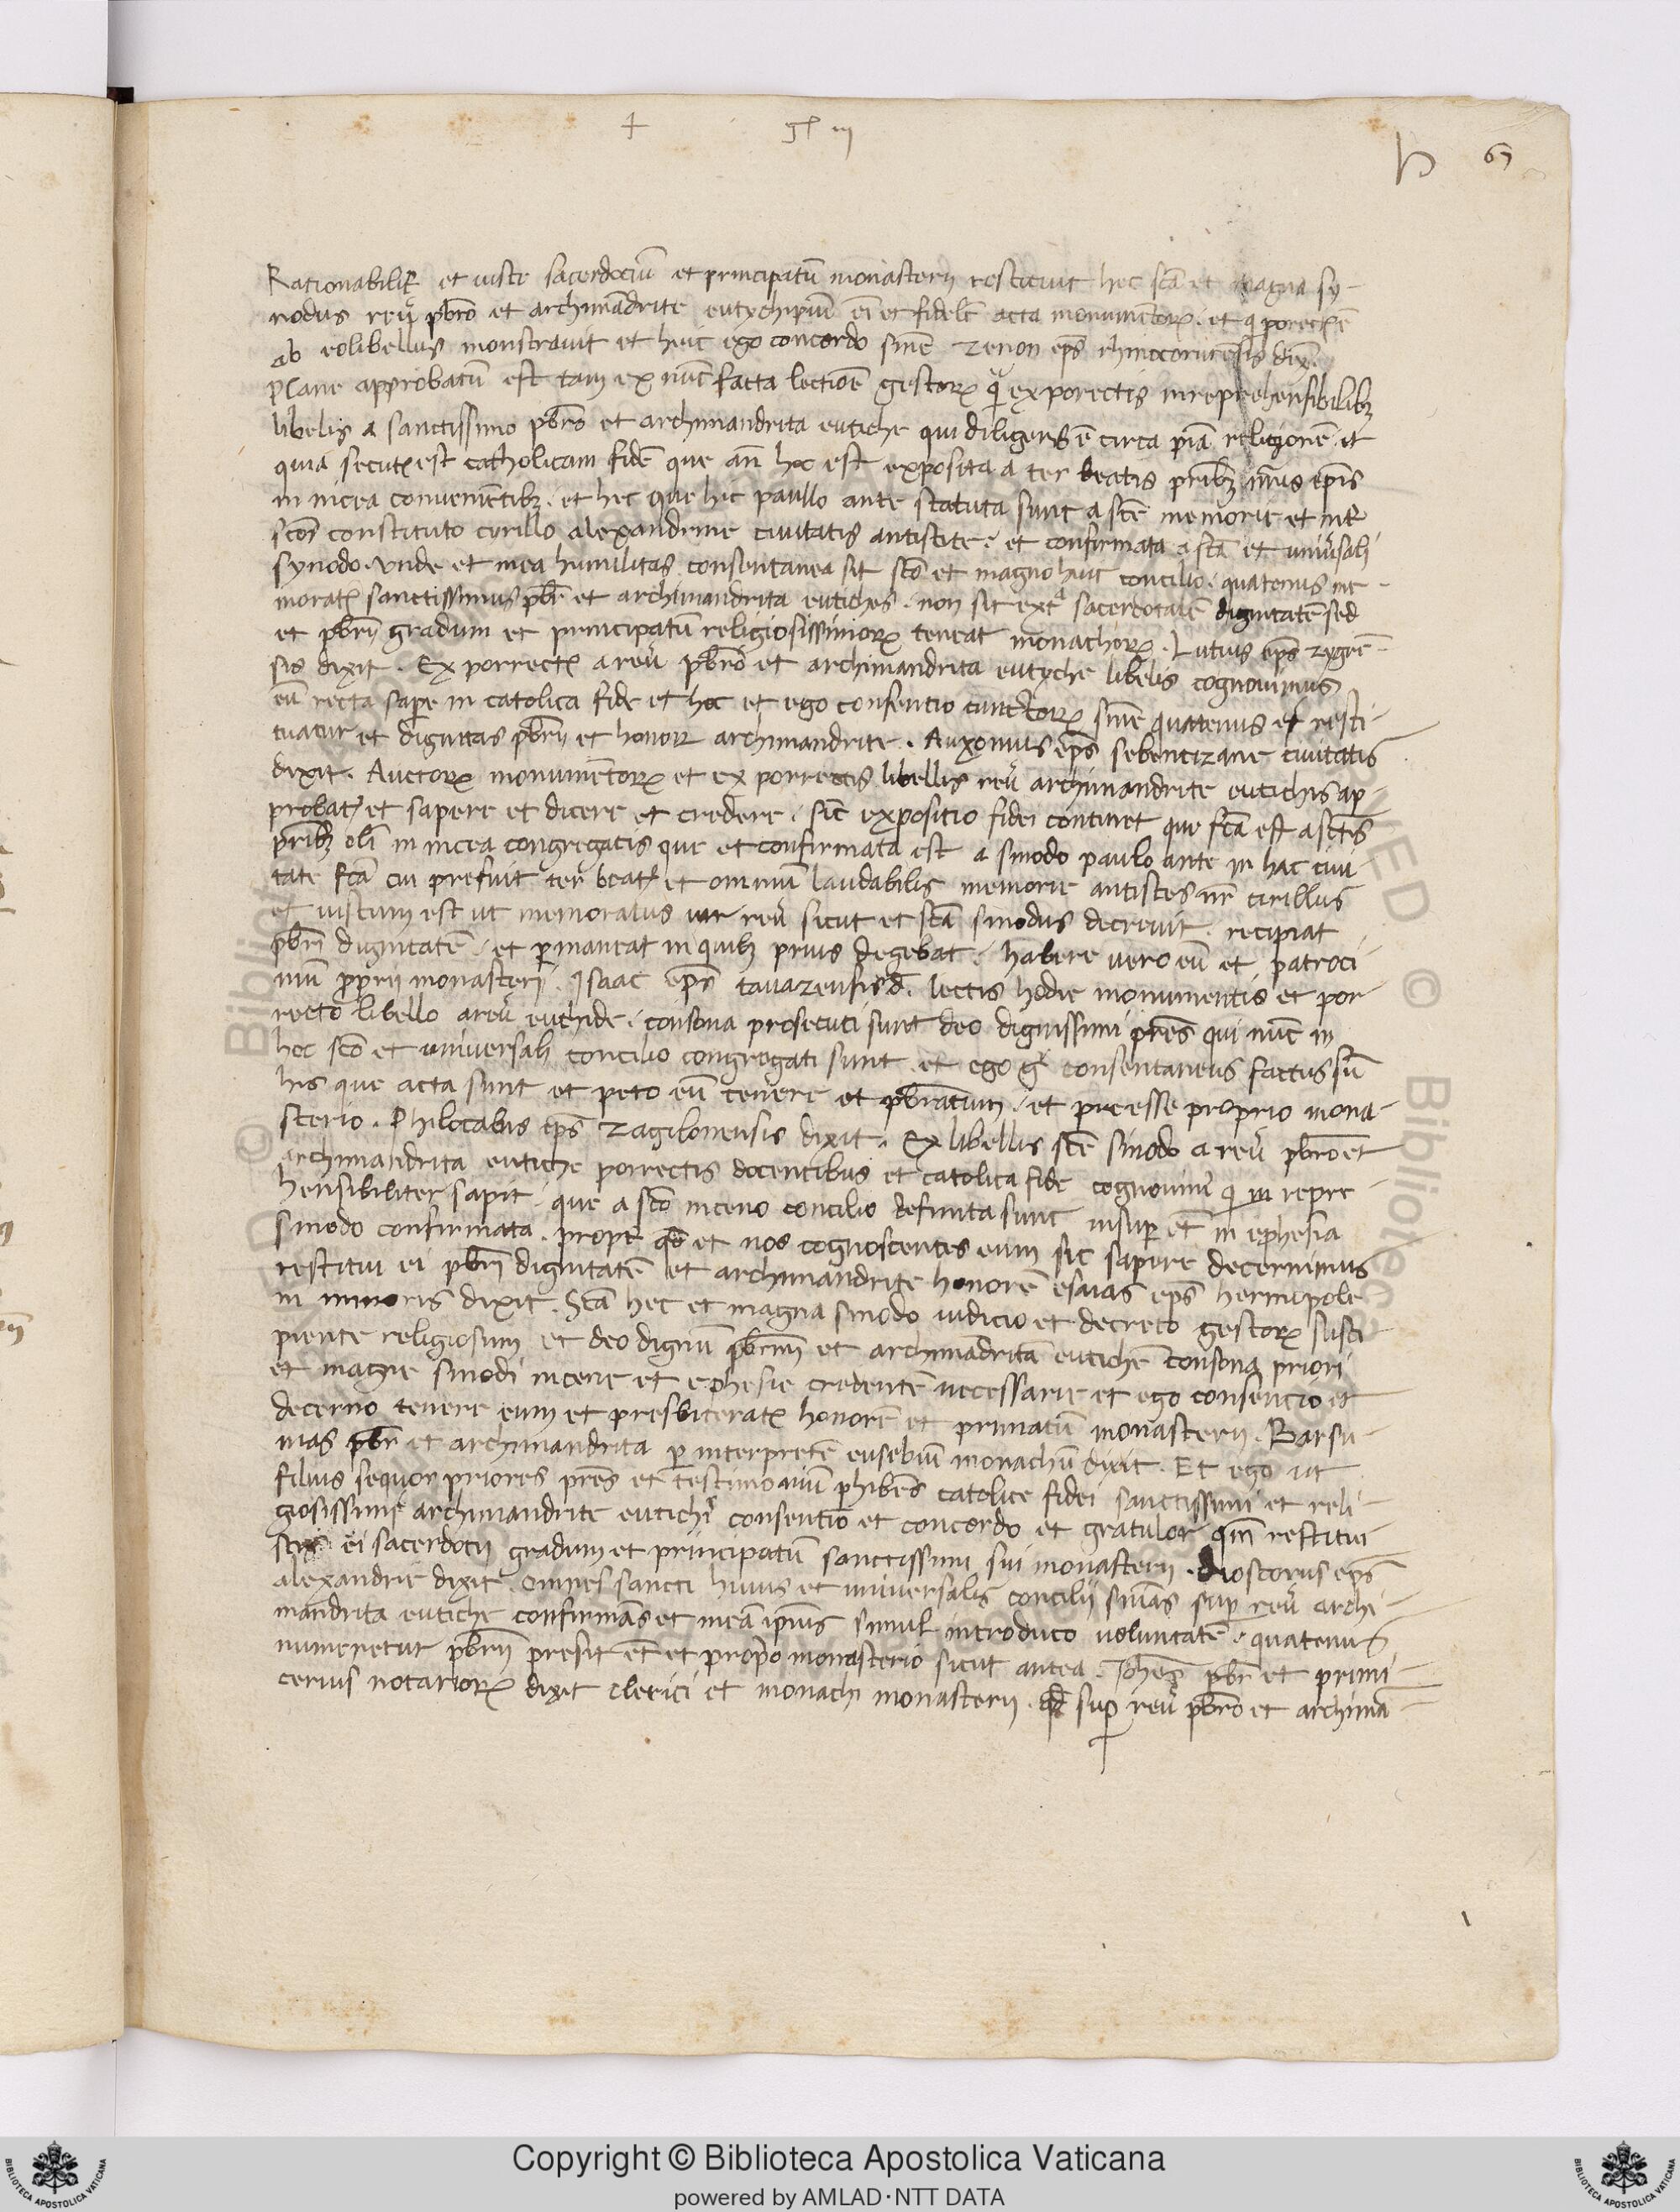 + gl m
h 67
Rationabilit̄ et iuste sacerdociū et principatū monasterii restituit hec scā et magna sy-
nodus reṽ pbrō et archimādrite eutychiū eī et fidelē acta monumētoꝝ. et q porectꝰ ē
ab eo libellus monstravit et huic ego concordo sn̄ie zenon ep̄s rhinocorurēsis dix̄.
Plane approbatū est tam ex nūc facta lectiōe gestoꝝ q̄ ex porectis inreprehensibilibꝫ
libelis a sanctissimo pbrō et archimandrita eutiche qui diligens ē circa piā religionē et
quia secutꝰ est catholicam fidē que an̄ hoc est exposita a ter beatis pr̄ibꝫ nr̄is ep̄is
in nicea convenientibꝫ. et hec que hic paullo ante statuta sunt a scē memorie et int̄
scōs constituto cyrillo alexandrine civitatis antistite. et confirmata a scā et univsali
synodo. unde et mea humilitas consentanea sit scō et magno huic concilio. quatenus me-
moratꝰ sanctissimus pbr̄ et archimandrita eutiches. non sit extª sacerdotalē dignitatē sed
et pbrī gradum et principatū religiosissimoꝝ teneat monachoꝝ. Lutius ep̄s zygrē-
sis dixit. Ex porrectꝰ a reṽ pbrō et archimandrita eutyche libelis cognovimus
eū recta sap̄e in catolica fide et hoc et ego consentio cunctoꝝ sn̄ie quatenus ei resti-
tuatur et dignitas pbrii et honor archimandrite. Auxonius ep̄s sebentizane civitatis
dixit. Auctoꝝ monumētoꝝ et ex porrectis libellis reṽ archimandrite eutichis ap-
probatꝰ et sapere et dicere et credere. sic expositio fidei continet que fcā est a scīs
pr̄ibꝫ olī in nicea congregatis que et confirmata est a sinodo paulo ante in hac civi
tate fcā cui prefuit ter beatꝰ et omniū laudabilis memorie antistes nr̄ cirillus
et iustum est ut memoratus vir reṽ sicut et scā sinodus decrevit. recipiat
pbrī dignitatē. et p̄maneat in quibꝫ prius degebat. habere vero eū et patroci
niū p̄prii monasterii. Isaac ep̄s tavazensis d̄. lectis hodie monumentis et por-
recto libello a reṽ euthide. consona prosecuti sunt deo dignissimi pr̄es qui nūc in
hoc scō et universali concilio congregati sunt. et ego gͥ consentaneus factus sū
his que acta sunt et peto eū tenere et pbrātum. et preesse proprio mona-
sterio. Philocalus ep̄s zagilonensis dixit. Ex libellis scē sinodo a reṽ pbrō et
archimandrita eutiche porrectis docentibus et catolica fide cognovimꝰ q in repre-
hensibiliter sapit. que a scō niceno concilio definita sunt insup̄ et in ephesia
sinodo confirmata. propt̄ qd̄ et nos cognoscentes eum sic sapere decernimus
restitui ei pbrī dignitatē et archimandrite honorē esaias ep̄s hermupole
in minoris dixit. Scā hec et magna sinodo iudicio et decreto gestoꝝ susci-
piente religiosum et deo dignū pbrm̄ et archimādritā eutichē consona priori
et magne sinodi nicene et ephesie credentē necessarie et ego consencio et
decerno tenere eum et presbiteratꝰ honorē et primatū monasterii. Barsu-
mas pbr̄ et archimandrita p̄ interpretē eusebiū monachū dixit. Et ego ut
filius sequor priores pr̄es et testimoniū phibēs catolice fidei sanctissimi et reli-
giosissimi archimandrite eutichꝭ consentio et concordo et gratulor qm̄ restitui
ei sacerdotii gradum et principatū sanctissimi sui monasterii. dioscorus ep̄s
alexandrie dixit. omnes sancti huius et universalis concilii sn̄ias sup̄ reṽ archi-
mandrita eutiche confirmās et meā ip̄ius simul introduco voluntatē. quatenus
numeretur pbrii presit et et p̄prio monasterio sicut antea. Iohēs pbr̄ et primi-
cerius notarioꝝ dixit clerici et monachi monasterii. qd̄ sup̄ reṽ pbrō et archimā-
© Biblioteca
Copyright © Biblioteca Apostolica Vaticana
powered by AMLAD·NTT DATA
BIBLIOTECA APOSTOLICA VATICANA
BIBLIOTECA APOSTOLICA VATICANA